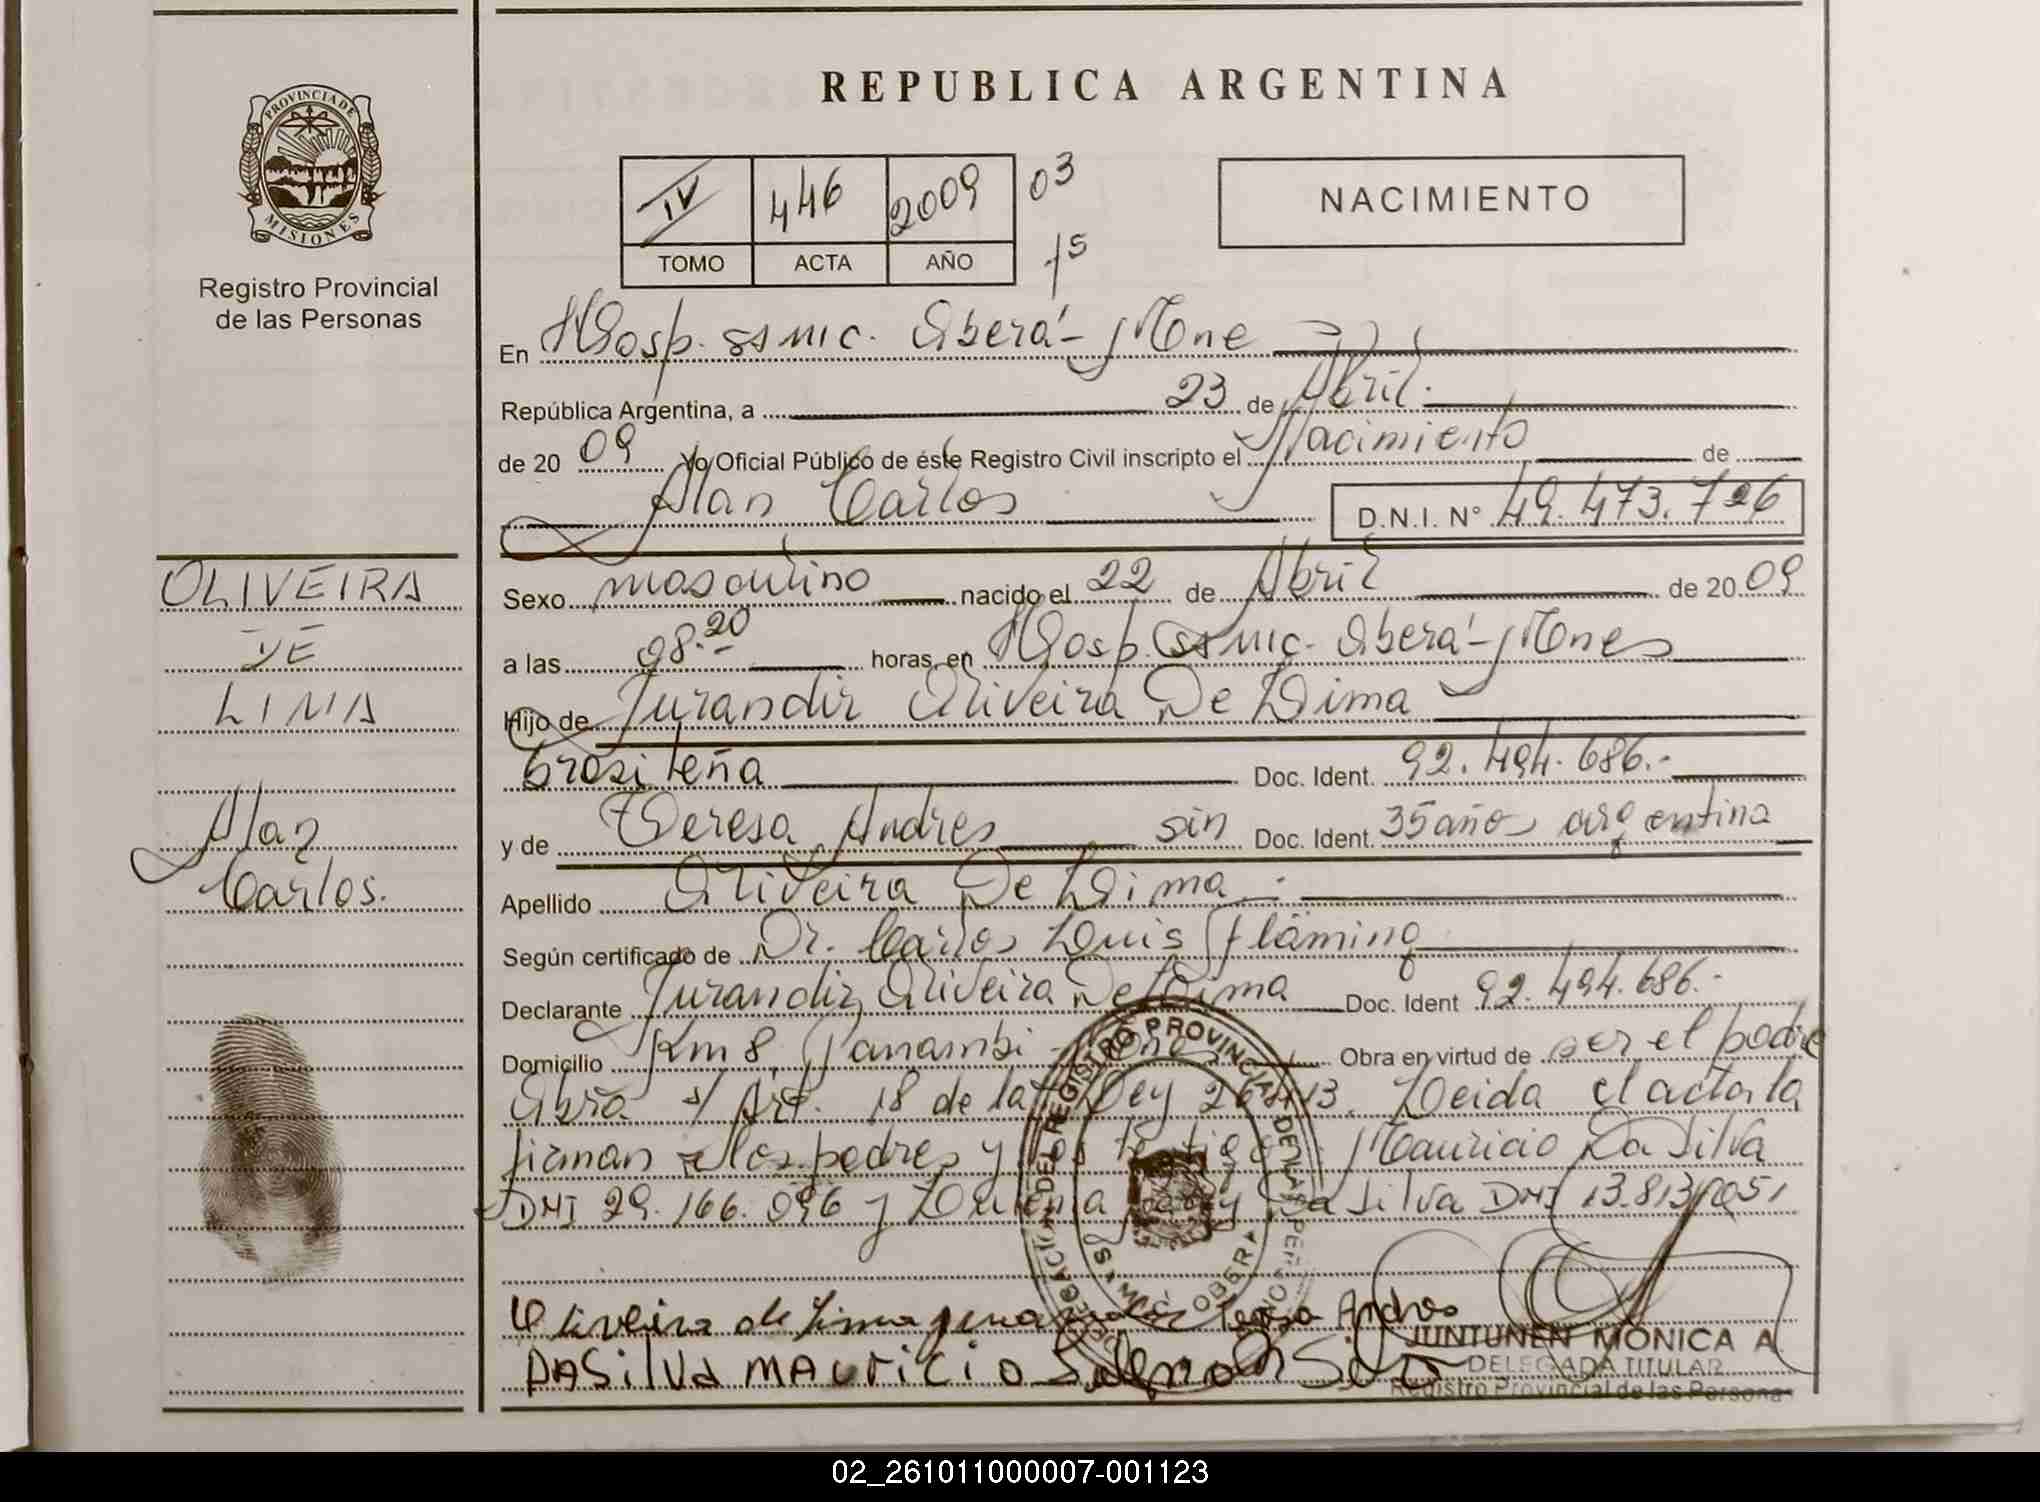 PROVINCIA DE
MISIONES
Registro Provincial
de las Personas
REPUBLICA ARGENTINA
IV 446 2009 03
TOMO ACTA AÑO 15
NACIMIENTO
En Hosp. ssmic. Oberá - Mnes
República Argentina, a 23 de Abril.
de 20 09 Yo Oficial Público de éste Registro Civil inscripto el Nacimiento de
Alan Carlos D.N.I. N° 49.473.726
OLIVEIRA
DE
LIMA
Alan
Carlos.
Sexo masculino nacido el 22 de Abril de 20 09
a las 08.20 horas, en Hosp. ssmic. Oberá - Mnes
Hijo de Jurandir Oliveira De Lima
brasileña Doc. Ident. 92.494.686.-
y de Teresa Andres sin Doc. Ident. 35 años argentina
Apellido Oliveira De Lima.-
Según certificado de Dr. Carlos Luis Fläming
Declarante Jurandir Oliveira De Lima Doc. Ident 92.494.686.-
Domicilio Km 8, Panambi - Obra en virtud de ser el padre
Obra s/ Art. 18 de la Ley 26.413. Leida el acta la
firman los padres y los testigos Mauricio Da Silva
DNI 29.166.096 y Da Silva DNI 13.813.051
Oliveira de Lima Teresa Andres
DASilva MAuricio
JUNTUNEN MONICA A.
DELEGADA TITULAR
Registro Provincial de las Personas
DELEGACION DEL REGISTRO PROVINCIAL DE LAS PERSONAS
OBERA
02_261011000007-001123